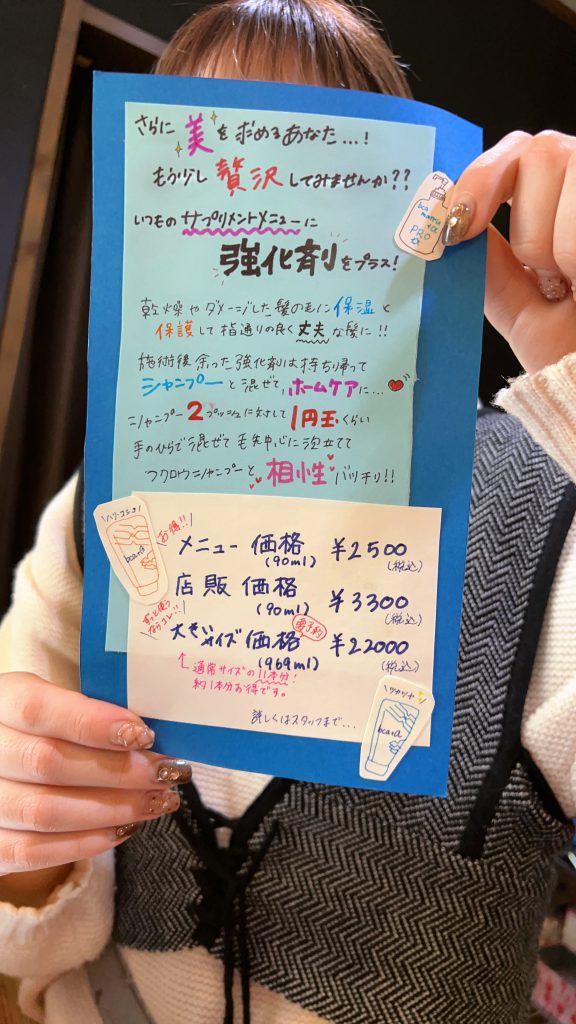 さらに美を求めるあなた…!
もう少し贅沢してみませんか??
いつものサプリメントメニューに
強化剤をプラス!
bca
matrix
+α
PRO
乾燥やダメージした髪の毛に保湿と
保護して指通りの良く丈夫な髪に!!
施術後余った強化剤は持ち帰って
シャンプーと混ぜて、ホームケアに…
シャンプー2プッシュに対して1円玉くらい
手のひらで混ぜて毛先中心に泡立てて
フクロウシャンプーと相性バッチリ!!
ハリ・コシ
bca+α
お得!!
メニュー価格 ¥2500
(90ml) (税込)
店販価格 ¥3300
(90ml) (税込)
ずっと使う
ならコレ!!
大きいサイズ価格 要予約 ¥22000
(969ml) (税込)
↑通常サイズの11本分!
約1本分お得です。
詳しくはスタッフまで...
ツヤツヤ
bca+α